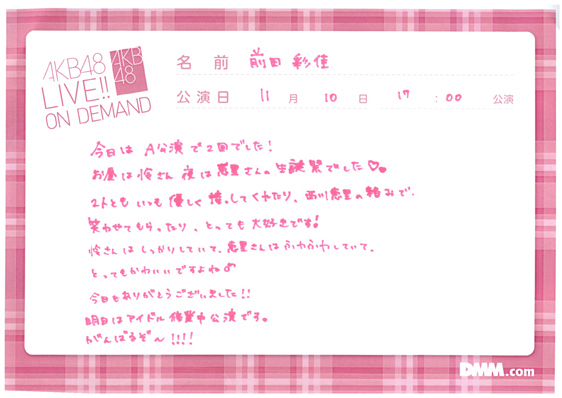 AKB48
LIVE!!
ON DEMAND
AKB
48
名前 前田 彩佳
公演日 11月 10日 17:00 公演
今日は A公演で2回でした!
お昼は怜さん 夜は恵里さんの生誕祭でした♡
2人とも いつも 優しく 接してくれたり、西川恵里の絡みで、
笑わせてもらったり、とっても 大好きです!
怜さんは しっかりしていて、恵里さんは ふわふわしていて、
とってもかわいいですよね♂
今日もありがとうございました!!
明日はアイドル修業中公演です。
がんばるぞ〜!!!!
DMM.com